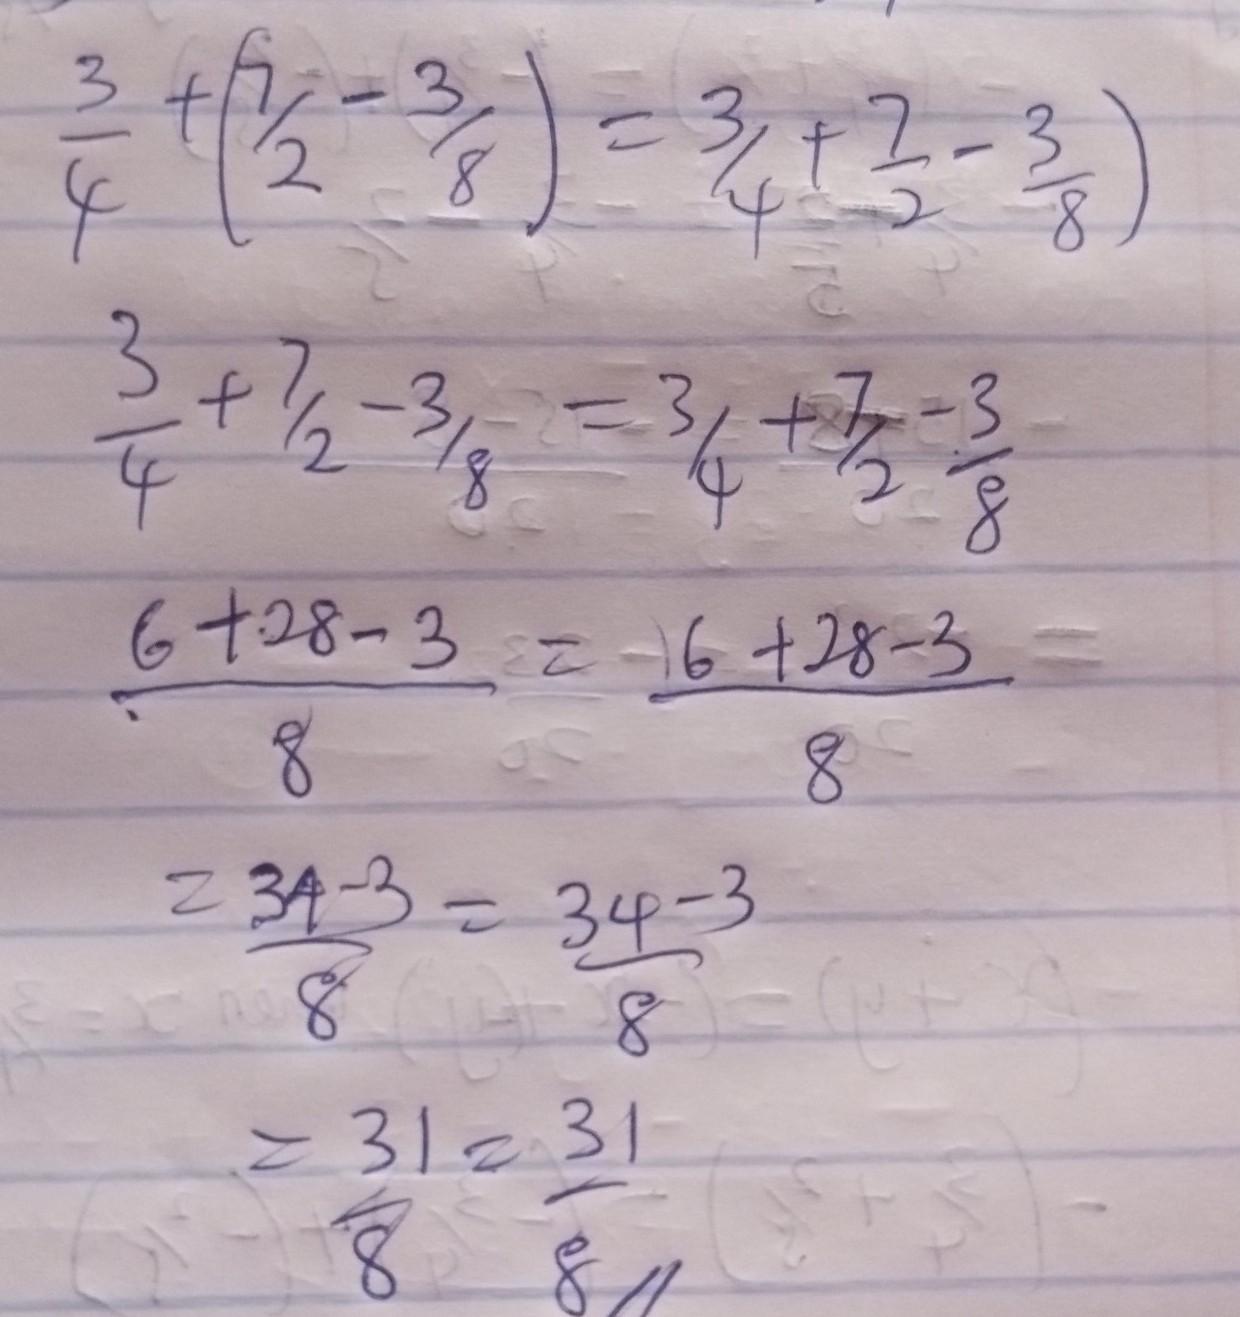 3/4 + (7/2 - 3/8) = 3/4 + 7/2 - 3/8)
3/4 + 7/2 - 3/8 = 3/4 + 7/2 - 3/8
6 + 28 - 3 / 8 = 6 + 28 - 3 / 8
= 34 - 3 / 8 = 34 - 3 / 8
= 31/8 = 31/8 //